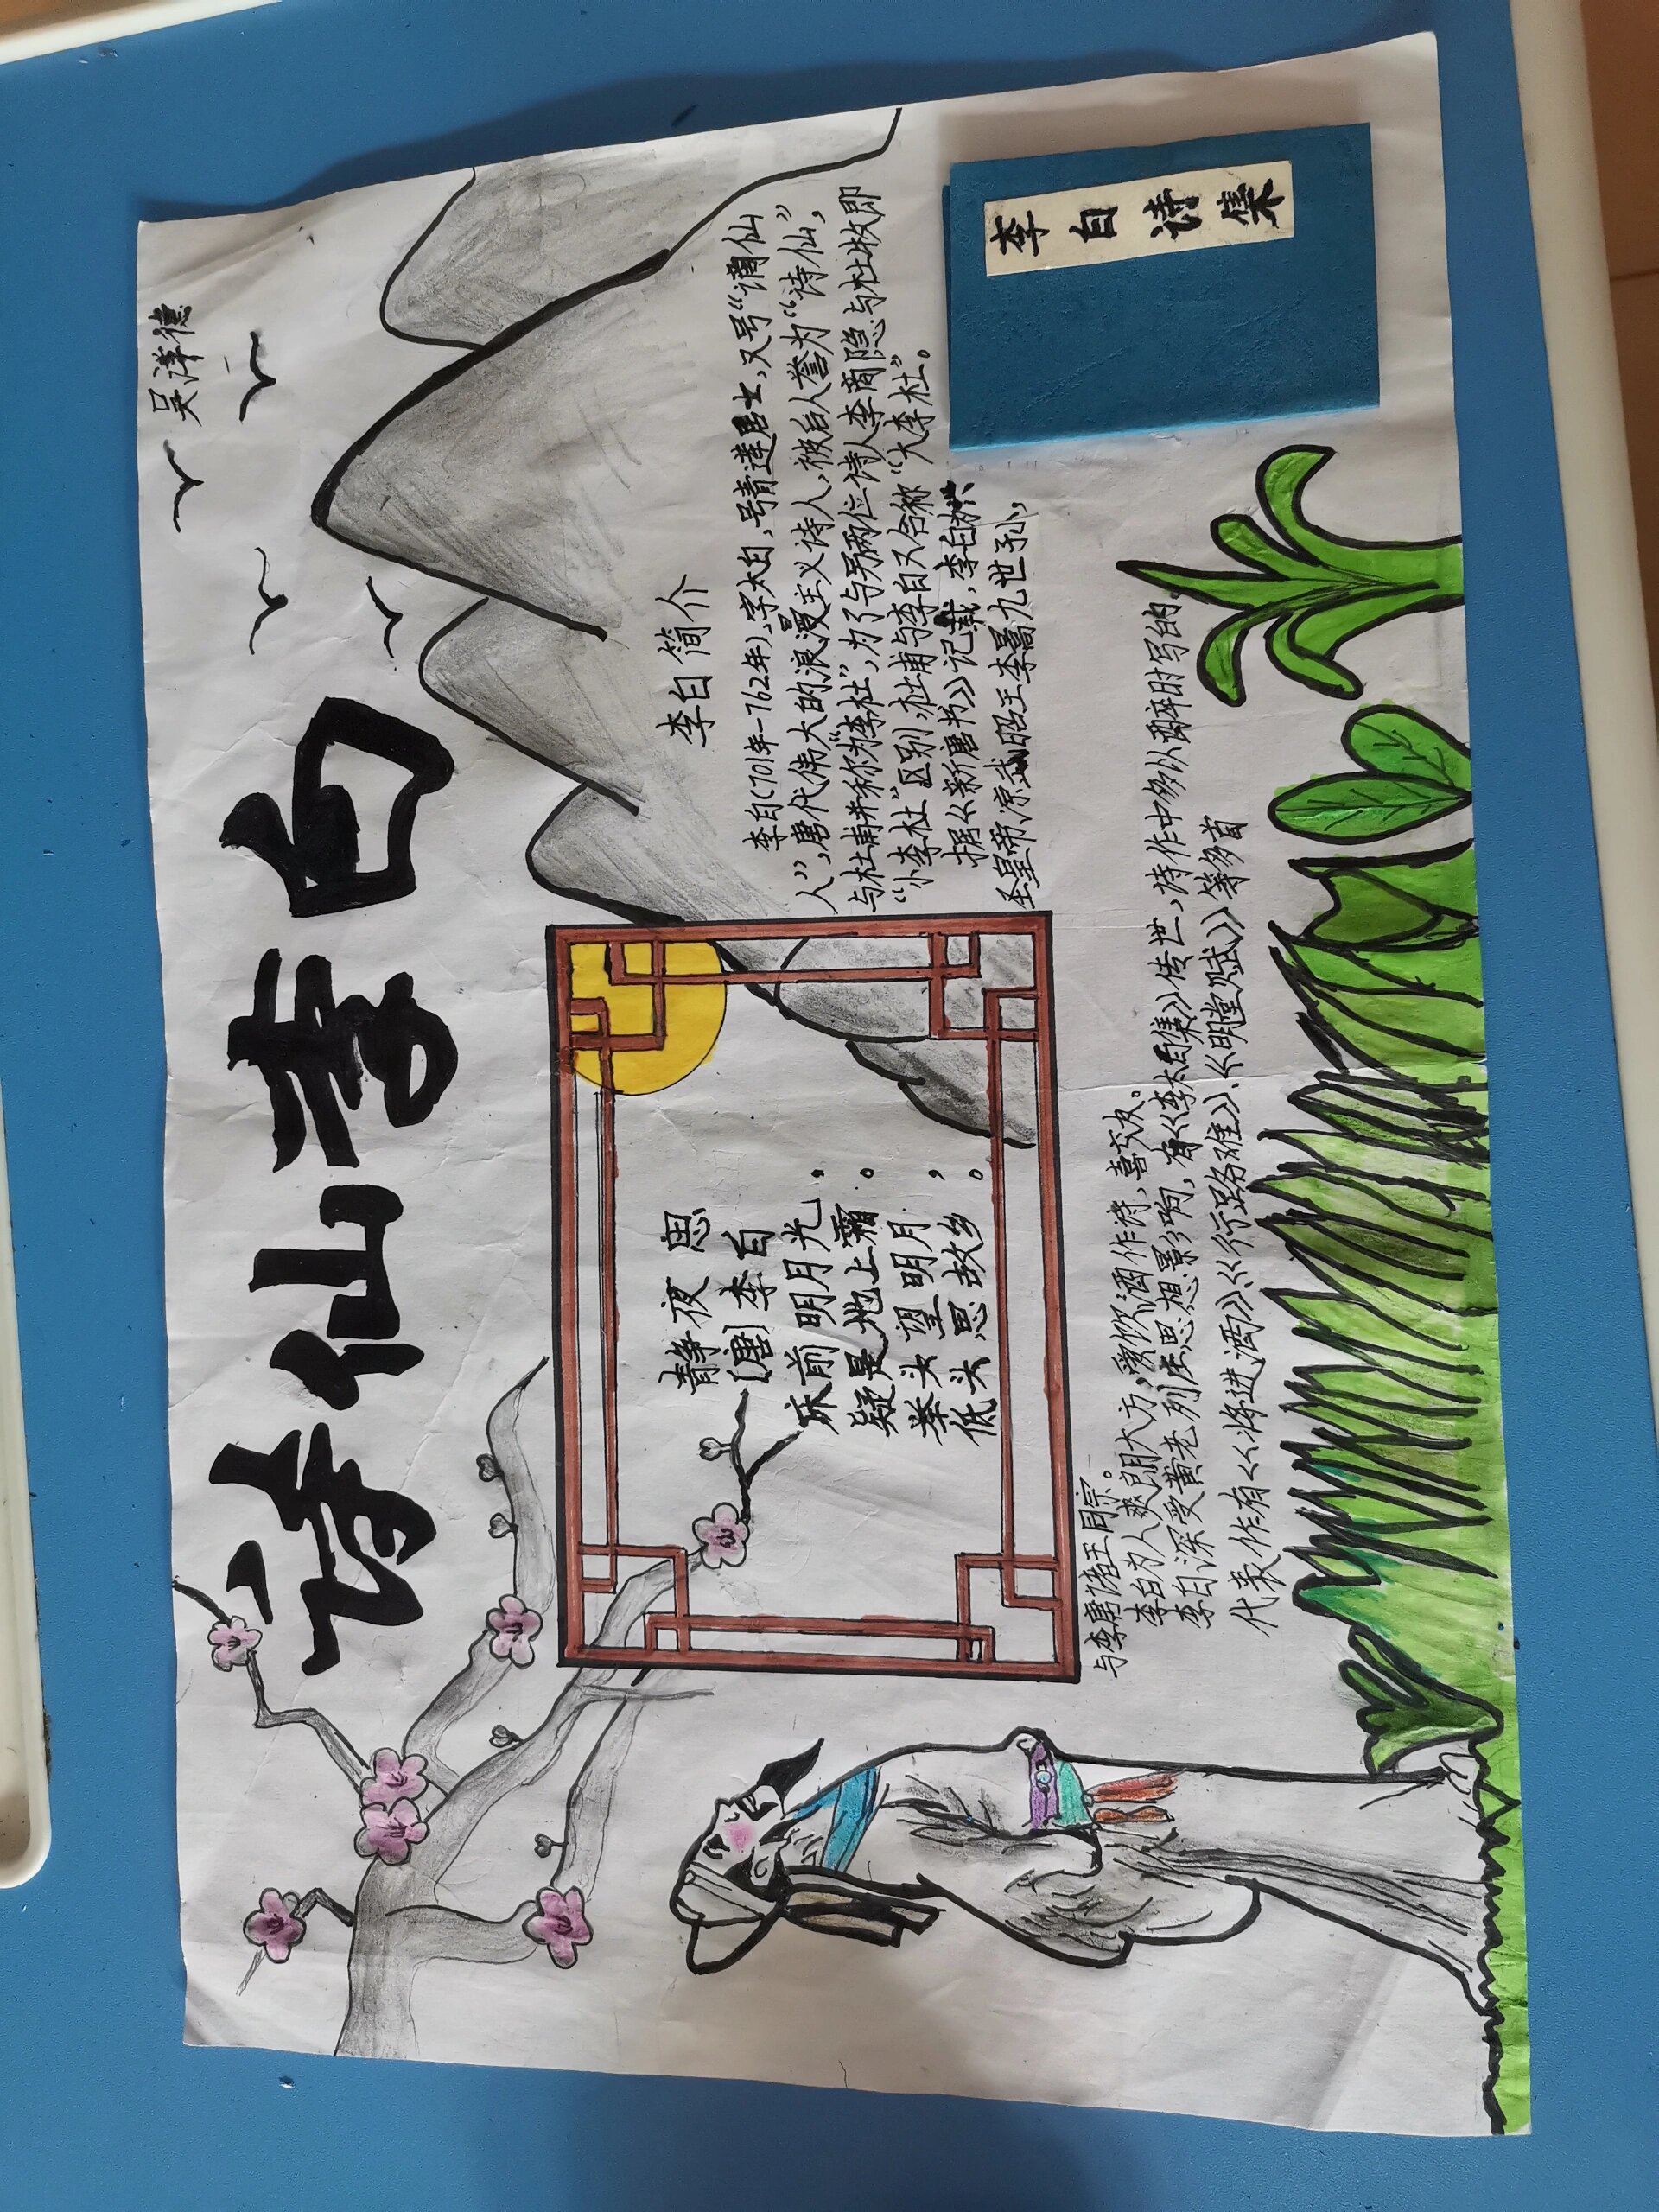 诗仙李白
吴洋德
静夜思
[唐]李白
床前明月光，
疑是地上霜。
举头望明月，
低头思故乡。
李白简介
李白(701年-762年)，字太白，号青莲居士，又号“谪仙
人”，唐代伟大的浪漫主义诗人，被后人誉为“诗仙”，
与杜甫并称为“李杜”，为了与另两位诗人李商隐与杜牧即
“小李杜”区别，杜甫与李白又合称“大李杜”。
据《新唐书》记载，李白为兴
圣皇帝凉武昭王李暠九世孙，
与李唐诸王同宗。
李白为人爽朗大方，爱饮酒作诗，喜交友。
李白深受黄老列庄思想影响，有《李太白集》传世，诗作中多以醉时写的，
代表作有《将进酒》、《行路难》、《明堂赋》等多首
李白诗集